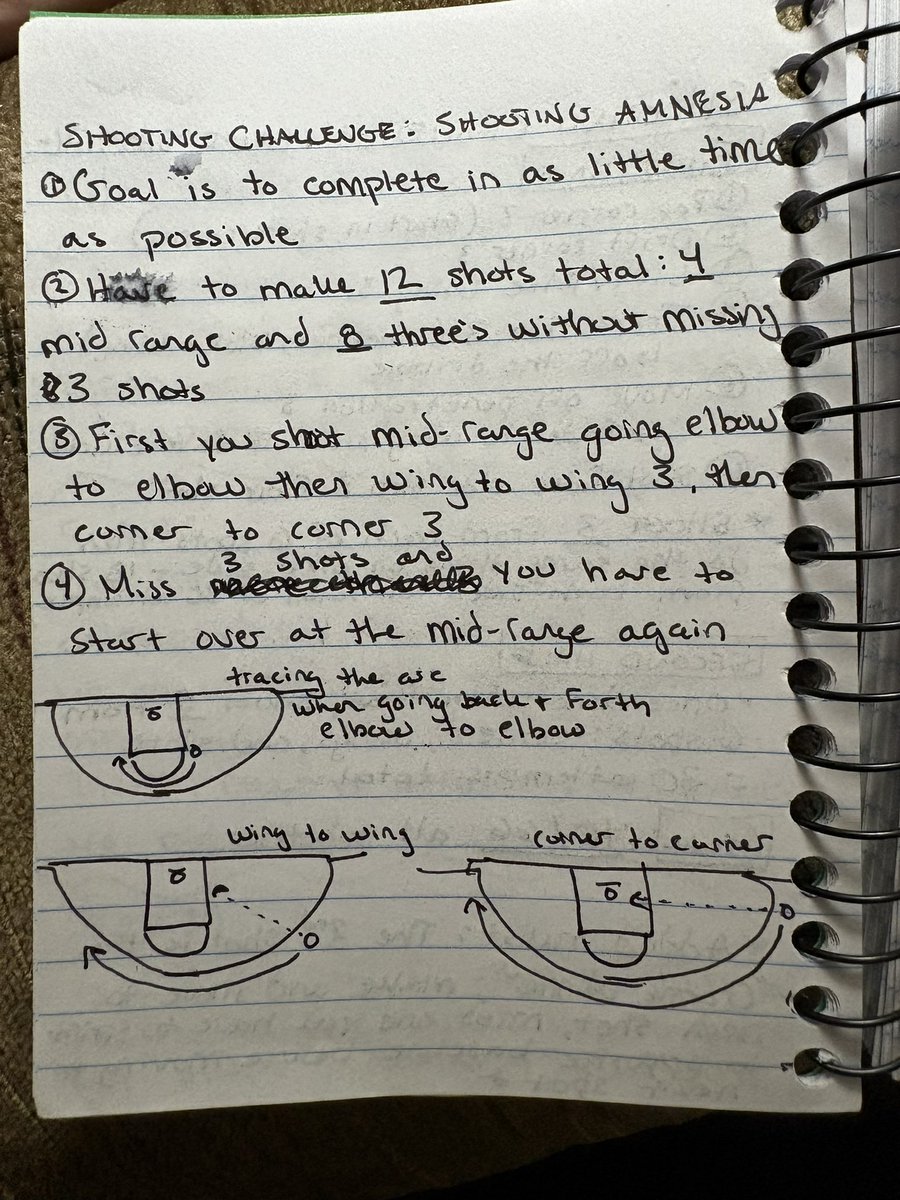 SHOOTING CHALLENGE: SHOOTING AMNESIA
① Goal is to complete in as little time
as possible
② Have to make 12 shots total: 4
mid range and 8 three's without missing
3 shots
③ First you shoot mid-range going elbow
to elbow then wing to wing 3, then
corner to corner 3
3 shots and
④ Miss you have to
start over at the mid-range again
tracing the arc
when going back + forth
elbow to elbow
wing to wing
corner to corner